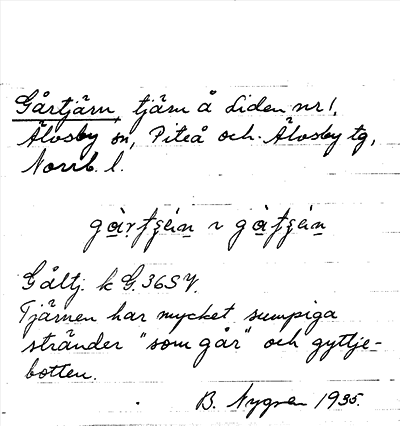 Gårtjärn, tjärn å Liden nr 1,
Älvsby sn, Piteå och Älvsby tg,
Norrb. l.
Gåltj. k G. 36 SV.
Tjärnen har mycket sumpiga
stränder "som går" och gyttje-
botten.
B. Nygren 1935.